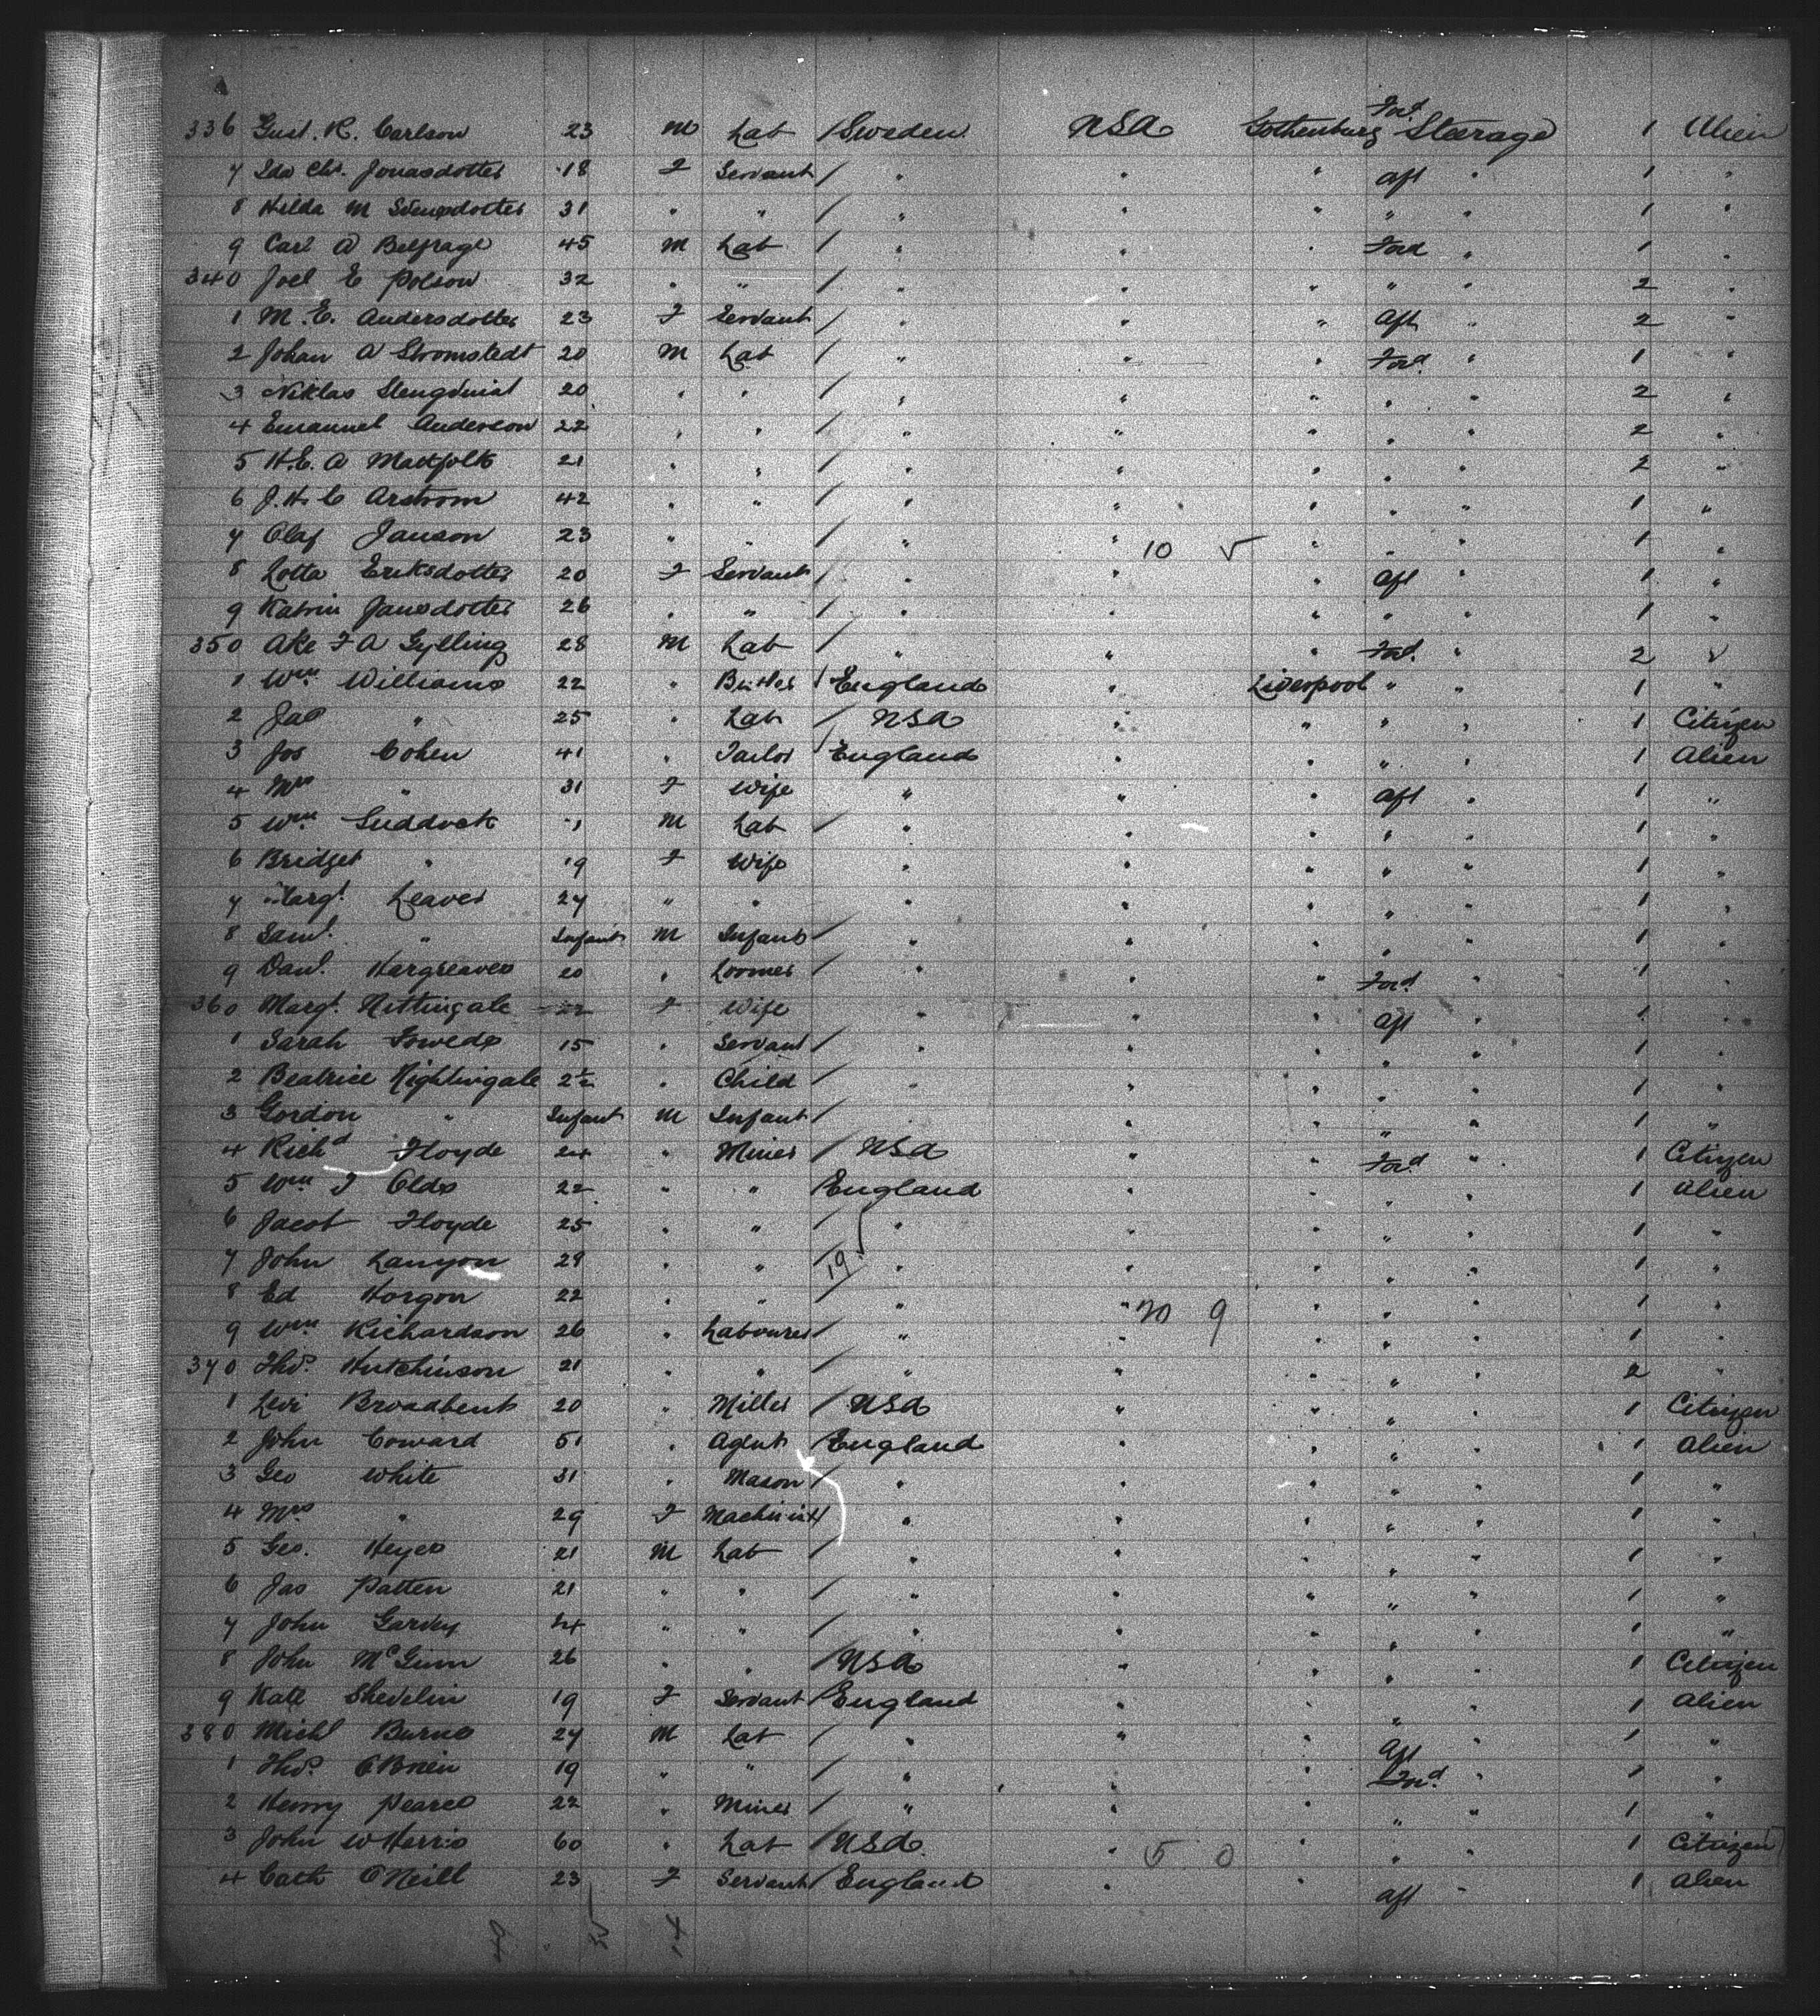 336 Gust. R. Carlson 23 M Lab / Sweden USA Gothenburg Ford Steerage 1 Alien
7 Ida Chr. Jonasdotter 18 F Servant / " " " Aft " 1 "
8 Hilda M Svensdotter 31 " " / " " " " " 1 "
9 Carl A Belfrage 45 M Lab / " " " Ford " 1 "
340 Joel E Polson 32 " " / " " " " " 2 "
1 M. E. Andersdotter 23 F Servant / " " " Aft " 2 "
2 Johan A Stromstedt 20 M Lab / " " " Ford " 1 "
3 Niklas 20 " " / " " " " " 2 "
4 Emanuel Anderson 22 " " / " " " " " 2 "
5 H. E. A 21 " " / " " " " " 2 "
6 J. H. C Arstrom 42 " " / " " " " " 1 "
7 Olaf Janson 23 " " / " " 10 √ " " " 1 "
8 Lotta Eriksdotter 20 F Servant / " " " Aft " 1 "
9 Katrin Jansdotter 26 " " / " " " " " 1 "
350 Ake F A Gylling 28 M Lab / " " " Ford " 2 "
1 Wm Williams 22 " Butler / England " Liverpool " " 1 "
2 Jas " 25 " Lab / USA " " " " 1 Citizen
3 Jos Cohen 41 " Tailor / England " " " " 1 Alien
4 Mrs " 31 F Wife " " " Aft " 1 "
5 Wm Suddock M Lab / " " " " " 1 "
6 Bridget " 19 F Wife " " " " " 1 "
7 Margt Leaver 27 " " " " " " " 1 "
8 Saml. " Infant M Infant / " " " " " 1 "
9 Danl. Hargreaves 20 " Loomer / " " " Ford " 1 "
360 Margt. Nittingale 22 F Wife " " " Aft " 1 "
1 Sarah 15 " Servant / " " " " " 1 "
2 Beatrice Nightingale 2½ " Child / " " " " " 1 "
3 Gordon " Infant M Infant / " " " " " 1 "
4 Richd Floyde 24 " Miner / USA " " Ford " 1 Citizen
5 Wm J Olds 22 " " / England " " " " 1 Alien
6 Jacob Floyde 25 " " / " " " " " 1 "
7 John Lanyon 29 " " / 19 √ " " " " " 1 "
8 Ed Horgon 22 " " / " " 20 9 " " " 1 "
9 Wm Richardson 26 " Labourer / " " " " " 1 "
370 Thos. Hutchinson 21 " " / " " " " " 2 "
1 Levi Broadbent 20 " Miller / USA " " " " 1 Citizen
2 John Coward 51 " Agent / England " " " " 1 Alien
3 Geo White 31 " Mason / " " " " " 1 "
4 Mrs " 29 F Machinist / " " " " " 1 "
5 Geo. Heyes 21 M Lab / " " " " " 1 "
6 Jas Patten 21 " " / " " " " " 1 "
7 John 24 " " / " " " " " 1 "
8 John McGinn 26 " " / USA " " " " 1 Citizen
9 Kate Shevelin 19 F Servant / England " " " " 1 Alien
380 Michl Burns 27 M Lab / " " " Aft " 1 "
1 Thos. O'Brien 19 " " / " " " Ford " 1 "
2 Henry Pearce 22 " Miner / " " " " " 1 "
3 John W Harris 60 " Lab / USA " 5 0 " " " 1 Citizen
4 Cath O'Neill 23 F Servant / England " " Aft " 1 Alien